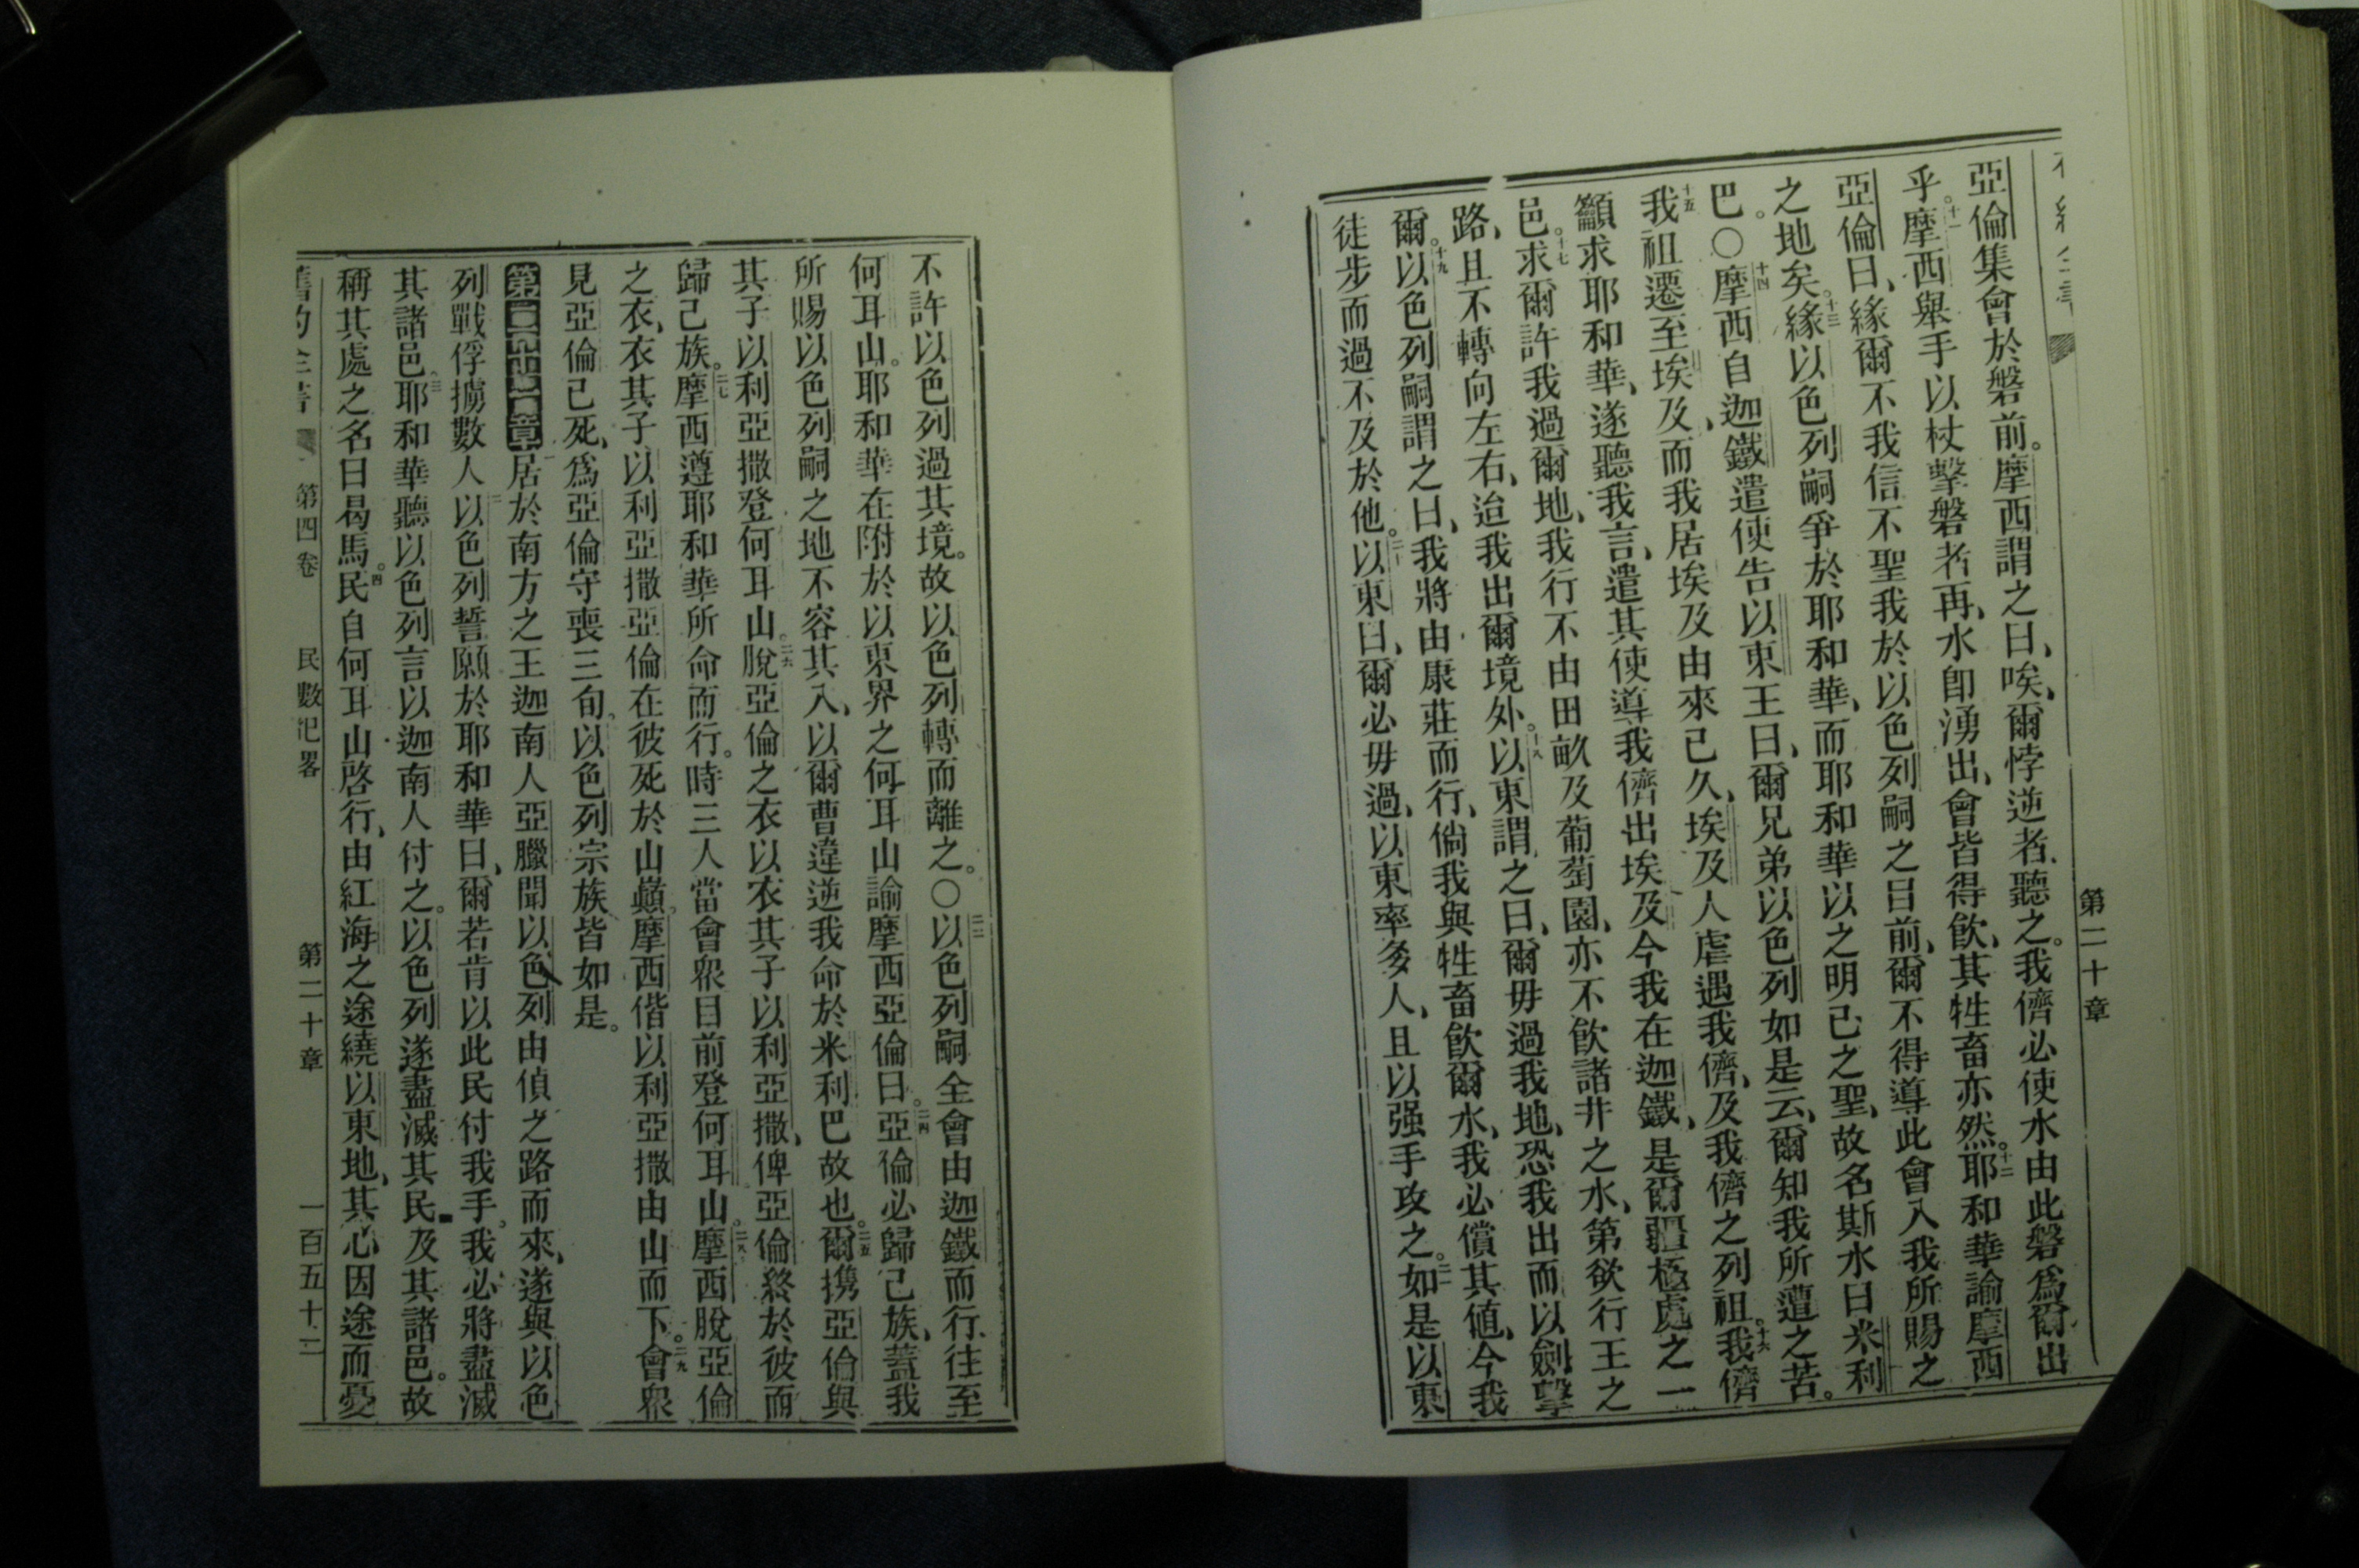 第二十章
亞倫集會於磐前。摩西謂之曰、唉、爾悖逆者、聽之。我儕必使水由此磐爲爾出
乎。十一摩西舉手以杖擊磐者再、水即湧出、會皆得飲、其牲畜亦然。十二耶和華諭摩西
亞倫曰、緣爾不我信不聖我於以色列嗣之目前、爾不得導此會入我所賜之
之地矣。十三緣以色列嗣爭於耶和華、而耶和華以之明己之聖、故名斯水曰米利
巴。○十四摩西自迦鐵遣使告以東王曰、爾兄弟以色列如是云、爾知我所遭之苦。
十五我祖遷至埃及、而我居埃及由來已久、埃及人虐遇我儕、及我儕之列祖。十六我儕
籲求耶和華、遂聽我言、遣其使導我儕出埃及今我在迦鐵、是爾疆極處之一
邑。十七求爾許我過爾地、我行不由田畝及葡萄園、亦不飲諸井之水、第欲行王之
路、且不轉向左右、迨我出爾境外。十八以東謂之曰、爾毋過我地、恐我出而以劍擊
爾。十九以色列嗣謂之曰、我將由康莊而行、倘我與牲畜飲爾水、我必償其值、今我
徒步而過不及於他。二十以東曰、爾必毋過、以東率多人、且以强手攻之。二一如是以東
不許以色列過其境。故以色列轉而離之。○二二以色列嗣全會由迦鐵而行、往至
何耳山。耶和華在附於以東界之何耳山諭摩西亞倫曰。二四亞倫必歸己族、蓋我
所賜以色列嗣之地不容其入、以爾曹違逆我命於米利巴故也。二五爾携亞倫與
其子以利亞撒登何耳山。二六脫亞倫之衣以衣其子以利亞撒、俾亞倫終於彼而
歸己族。二七摩西遵耶和華所命而行。時三人當會衆目前登何耳山。二八摩西脫亞倫
之衣、衣其子以利亞撒亞倫在彼死於山巔。摩西偕以利亞撒由山而下。二九會衆
見亞倫已死、爲亞倫守喪三旬。以色列宗族皆如是。
第二十一章 一居於南方之王迦南人亞臘聞以色列由偵之路而來、遂與以色
列戰俘擄數人二以色列誓願於耶和華曰、爾若肯以此民付我手。我必將盡滅
其諸邑。三耶和華聽以色列言以迦南人付之。以色列遂盡滅其民及其諸邑。故
稱其處之名曰曷馬。四民自何耳山啓行、由紅海之途繞以東地、其心因途而憂
舊約全書 第四卷 民數紀畧 第二十章 一百五十二